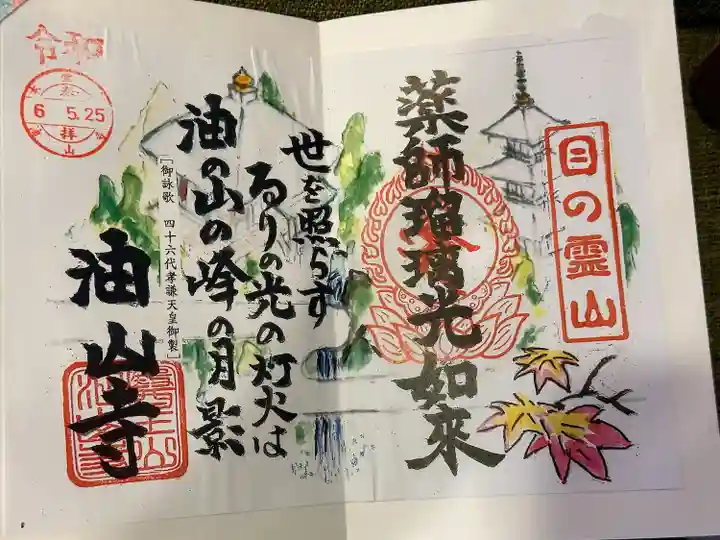 目の霊山
薬師瑠璃光如来
世を照らす
るりの光の灯火は
油の山の峰の月影
「御詠歌　四十六代孝謙天皇御製」
油山寺
令和
6 5.25
拝
山